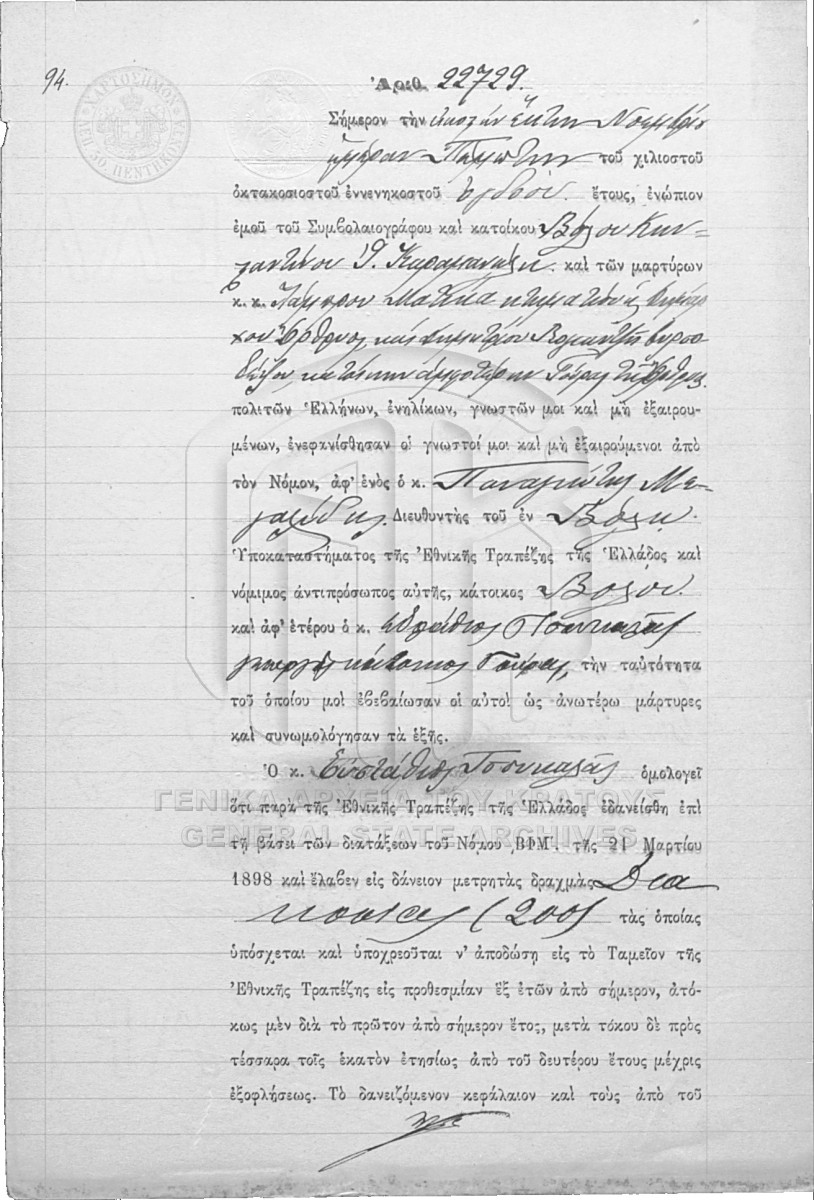 94.
ΧΑΡΤΟΣΗΜΟΝ
ΛΕΠ. 50. ΠΕΝΤΗΚΟΝΤΑ
Ἀριθ. 22729.
Σήμερον τὴν εἰκοστὴν ἕκτην Νοεμβρίου
ἡμέραν Πέμπτην τοῦ χιλιοστοῦ
ὀκτακοσιοστοῦ ἐννενηκοστοῦ ὀγδόου. ἔτους, ἐνώπιον
ἐμοῦ τοῦ Συμβολαιογράφου καὶ κατοίκου Βόλου Κων-
σταντίνου καὶ τῶν μαρτύρων
κ. κ. Λάμπρου κτηματίου
καὶ Δημητρίου
πολιτῶν Ἑλλήνων, ἐνηλίκων, γνωστῶν μοι καὶ μὴ ἐξαιρου-
μένων, ἐνεφανίσθησαν οἱ γνωστοί μοι καὶ μὴ ἐξαιρούμενοι ἀπὸ
τὸν Νόμον, ἀφ' ἑνὸς ὁ κ. Παναγιώτης Με-
Διευθυντὴς τοῦ ἐν Βόλῳ.
Ὑποκαταστήματος τῆς Ἐθνικῆς Τραπέζης τῆς Ἑλλάδος καὶ
νόμιμος ἀντιπρόσωπος αὐτῆς, κάτοικος Βόλου.
καὶ ἀφ' ἑτέρου ὁ κ. Εὐστάθιος Τσουκαλᾶς
γεωργὸς κάτοικος Γούρας, τὴν ταὐτότητα
τοῦ ὁποίου μοὶ ἐβεβαίωσαν οἱ αὐτοὶ ὡς ἀνωτέρω μάρτυρες
καὶ συνωμολόγησαν τὰ ἑξῆς.
Ὁ κ. Εὐστάθιος Τσουκαλᾶς ὁμολογεῖ
ΓΕΝΙΚΑ ΑΡΧΕΙΑ ΤΟΥ ΚΡΑΤΟΥΣ
ὅτι παρὰ τῆς Ἐθνικῆς Τραπέζης τῆς Ἑλλάδος ἐδανείσθη ἐπὶ
GENERAL STATE ARCHIVES
τῇ βάσει τῶν διατάξεων τοῦ Νόμου ͵ΒΦΜ΄. τῆς 21 Μαρτίου
1898 καὶ ἔλαβεν εἰς δάνειον μετρητὰς δραχμὰς Δια
κοσίας (200) τὰς ὁποίας
ὑπόσχεται καὶ ὑποχρεοῦται ν' ἀποδώσῃ εἰς τὸ Ταμεῖον τῆς
Ἐθνικῆς Τραπέζης εἰς προθεσμίαν ἓξ ἐτῶν ἀπὸ σήμερον, ἀτό-
κως μὲν διὰ τὸ πρῶτον ἀπὸ σήμερον ἔτος, μετὰ τόκου δὲ πρὸς
τέσσαρα τοῖς ἑκατὸν ἐτησίως ἀπὸ τοῦ δευτέρου ἔτους μέχρις
ἐξοφλήσεως. Τὸ δανειζόμενον κεφάλαιον καὶ τοὺς ἀπὸ τοῦ